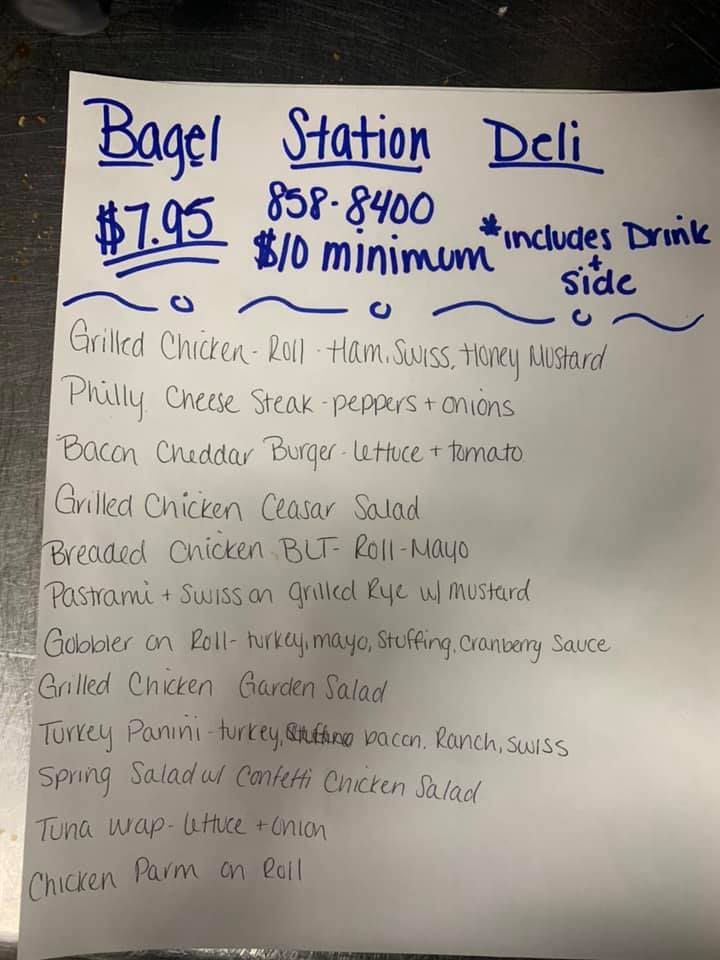 Bagel Station Deli
$7.95 858-8400 *includes Drink
$10 minimum + side
Grilled Chicken - Roll - Ham, Swiss, Honey Mustard
Philly Cheese Steak - peppers + onions
Bacon Cheddar Burger - lettuce + tomato
Grilled Chicken Ceasar Salad
Breaded Chicken BLT - Roll - Mayo
Pastrami + Swiss on grilled Rye w/ mustard
Gobbler on Roll - turkey, mayo, Stuffing, Cranberry Sauce
Grilled Chicken Garden Salad
Turkey Panini - turkey, bacon, Ranch, Swiss
Spring Salad w/ Confetti Chicken Salad
Tuna wrap - lettuce + onion
Chicken Parm on Roll